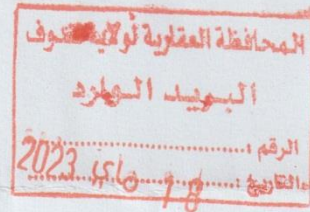 المحافظة العقارية لولاية
البريد الوارد
الرقم :
التاريخ : 18 ماي 2023